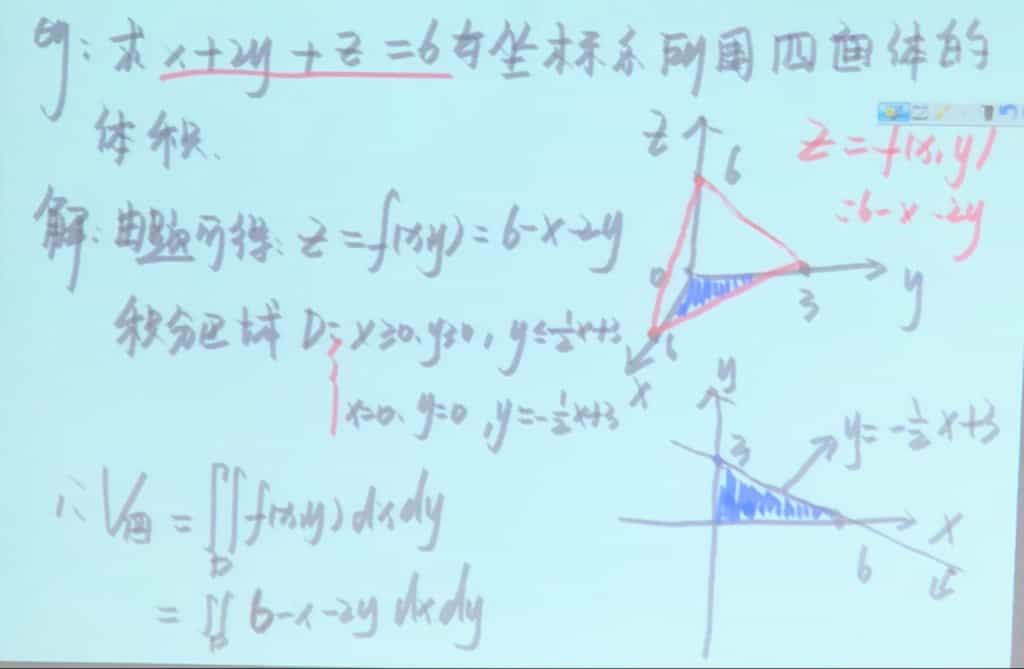 例:求 x+2y+z=6与坐标系所围四面体的
体积.
解:由题可得: z=f(x,y)=6-x-2y
积分区域 D: x≥0,y≥0, y≤-1/2x+3
x=0, y=0, y=-1/2x+3
∴V四=∬D f(x,y)dxdy
=∬D 6-x-2y dxdy
z
6
z=f(x,y)
=6-x-2y
0
3
y
6
x
y
3
y=-1/2x+3
6
x